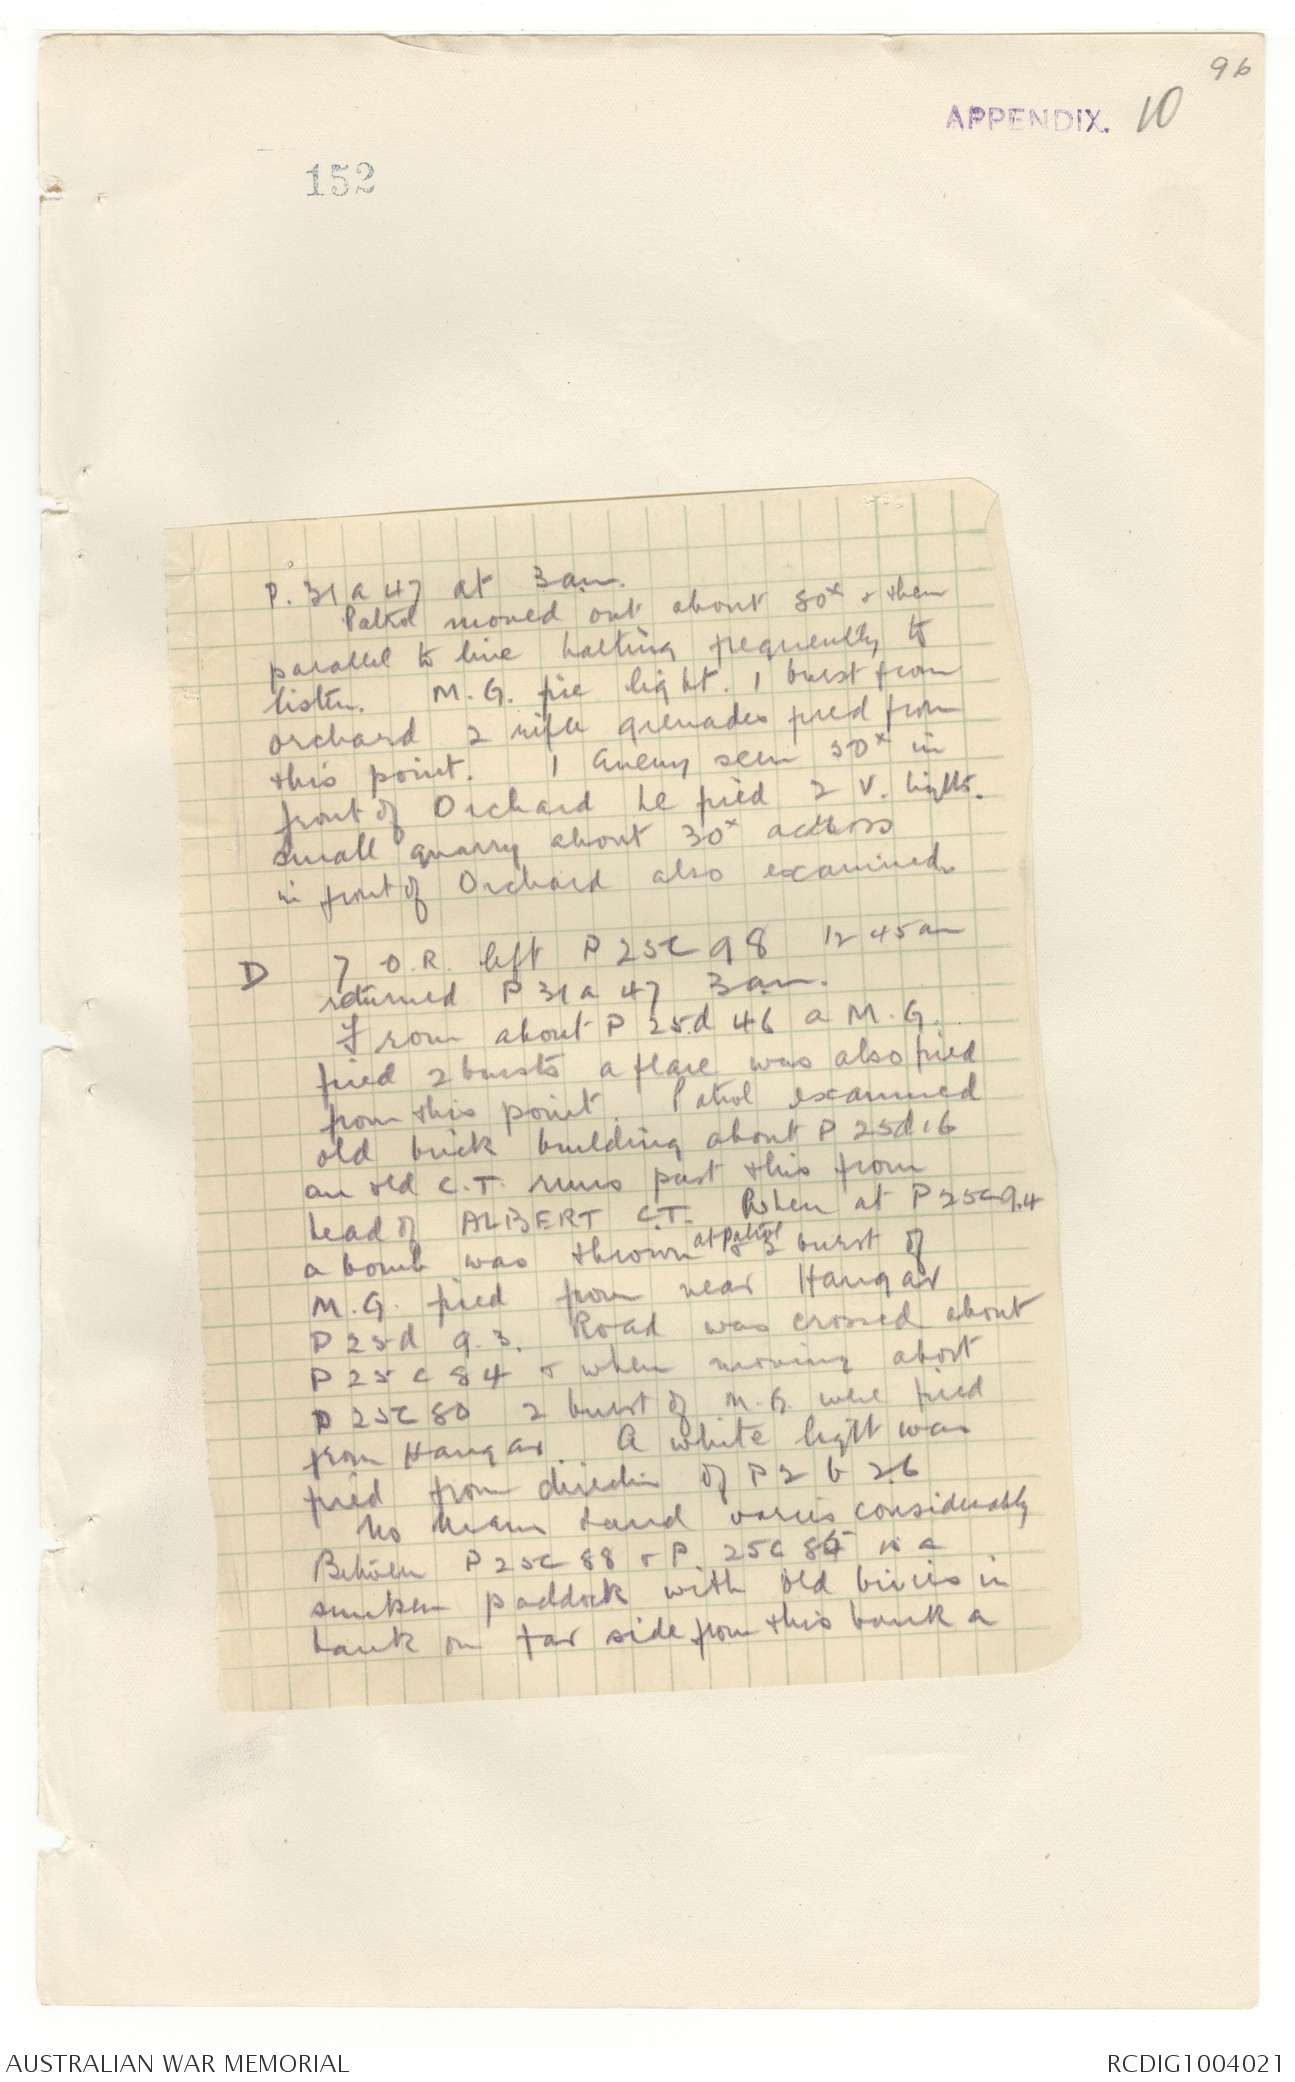 96
APPENDIX. 10
152
P. 31 a 47 at 3am.
Patrol moved out about 80x & then
parallel to line halting frequently to
listen. M.G. fire light. 1 burst from
orchard 2 rifle grenades fired from
this point. 1 enemy seen 30x in
front of Orchard he fired 2 V. lights.
Small quarry about 30x across
in front of Orchard also examined.
D 7 O.R. left P 25C 98 12 45am
returned P 31a 47 3am.
From about P 25.d 46 a M.G.
fired 2 bursts a flare was also fired
from this point. Patrol examined
old brick building about P 25d 16
an old C.T. runs past this from
head of ALBERT C.T. When at P25C9.4
a bomb was thrown at Patrol & burst of
M.G. fired from near Hangar
P 25d 9.3. Road was crossed about
P 25 C 84 & when moving about
P 25C 80 2 burst of M.G. were fired
from Hangar. A white light was
fired from direction of P 2 b 26
No mans Land varies considerably
Between P 25C 88 & P. 25C 86 is a
sunken paddock with old bivies in
bank on far side from this bank a
AUSTRALIAN WAR MEMORIAL
RCDIG1004021